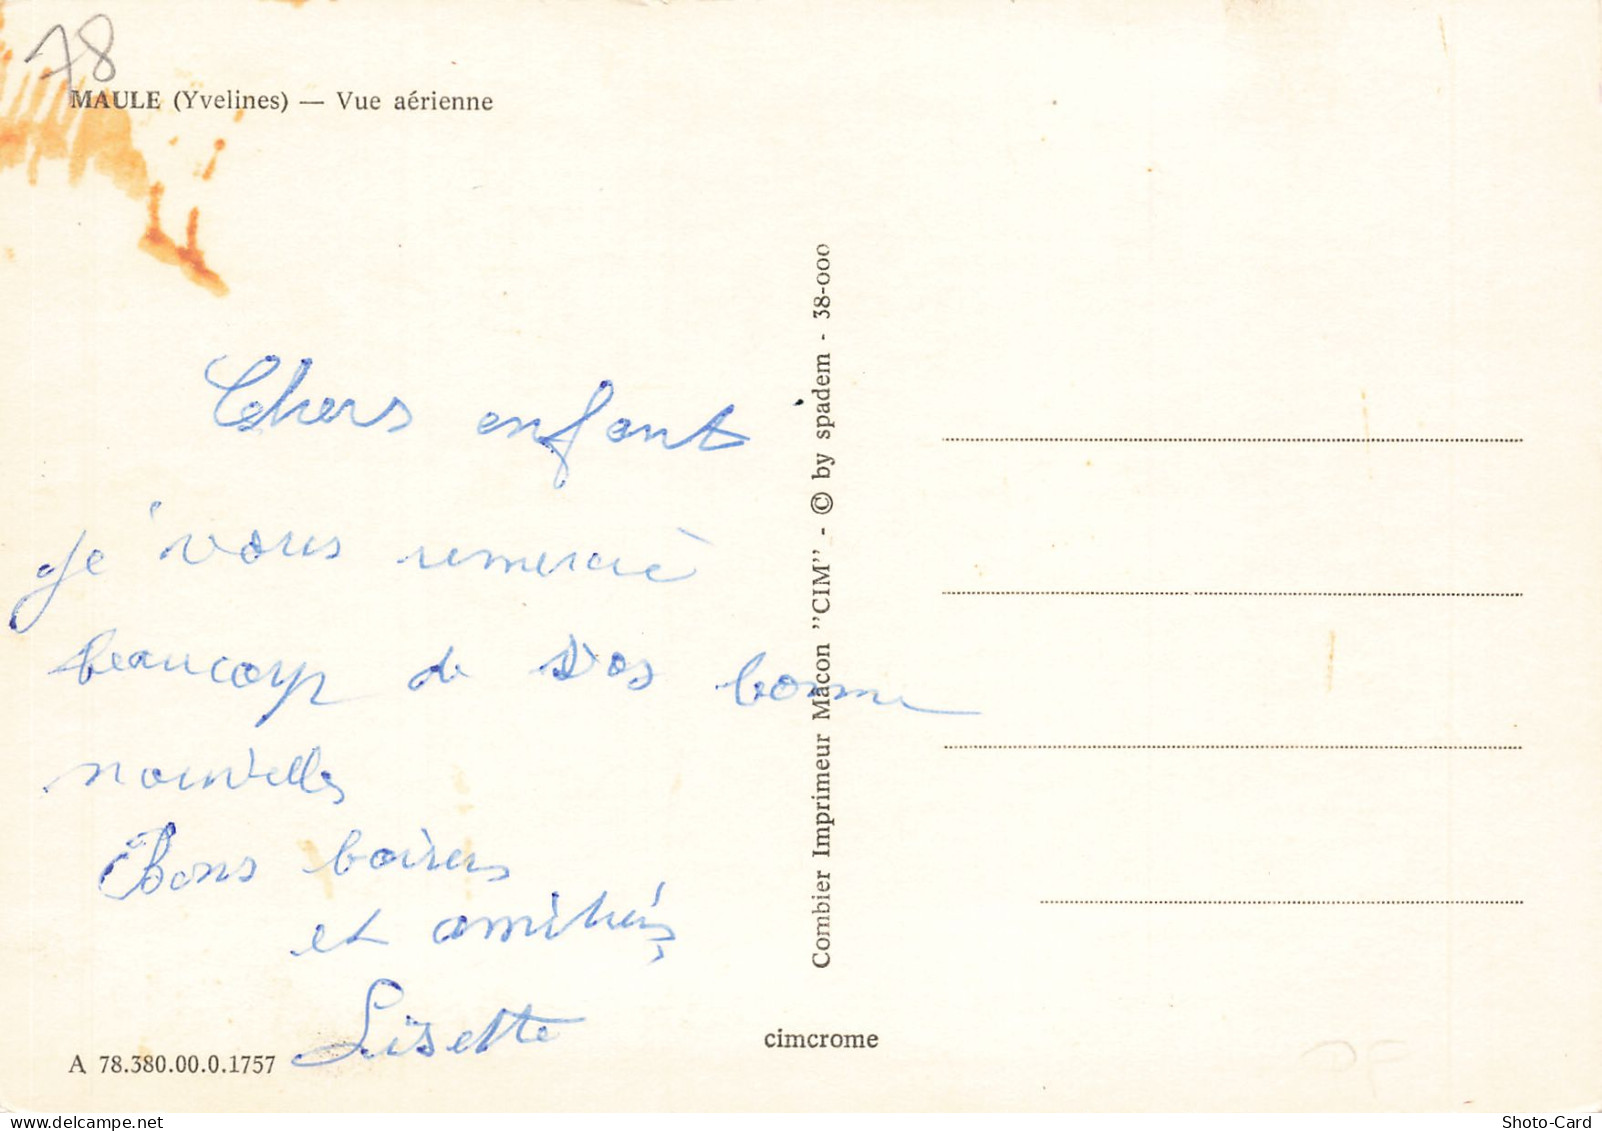 78
MAULE (Yvelines) — Vue aérienne
Chers enfant
je vous remercie
beaucoup de vos bonne
nouvelles
Bons baisers
et amitiés
Lisette
A 78.380.00.0.1757
Combier Imprimeur Macon "CIM" - © by spadem - 38-000
cimcrome
Shoto-Card